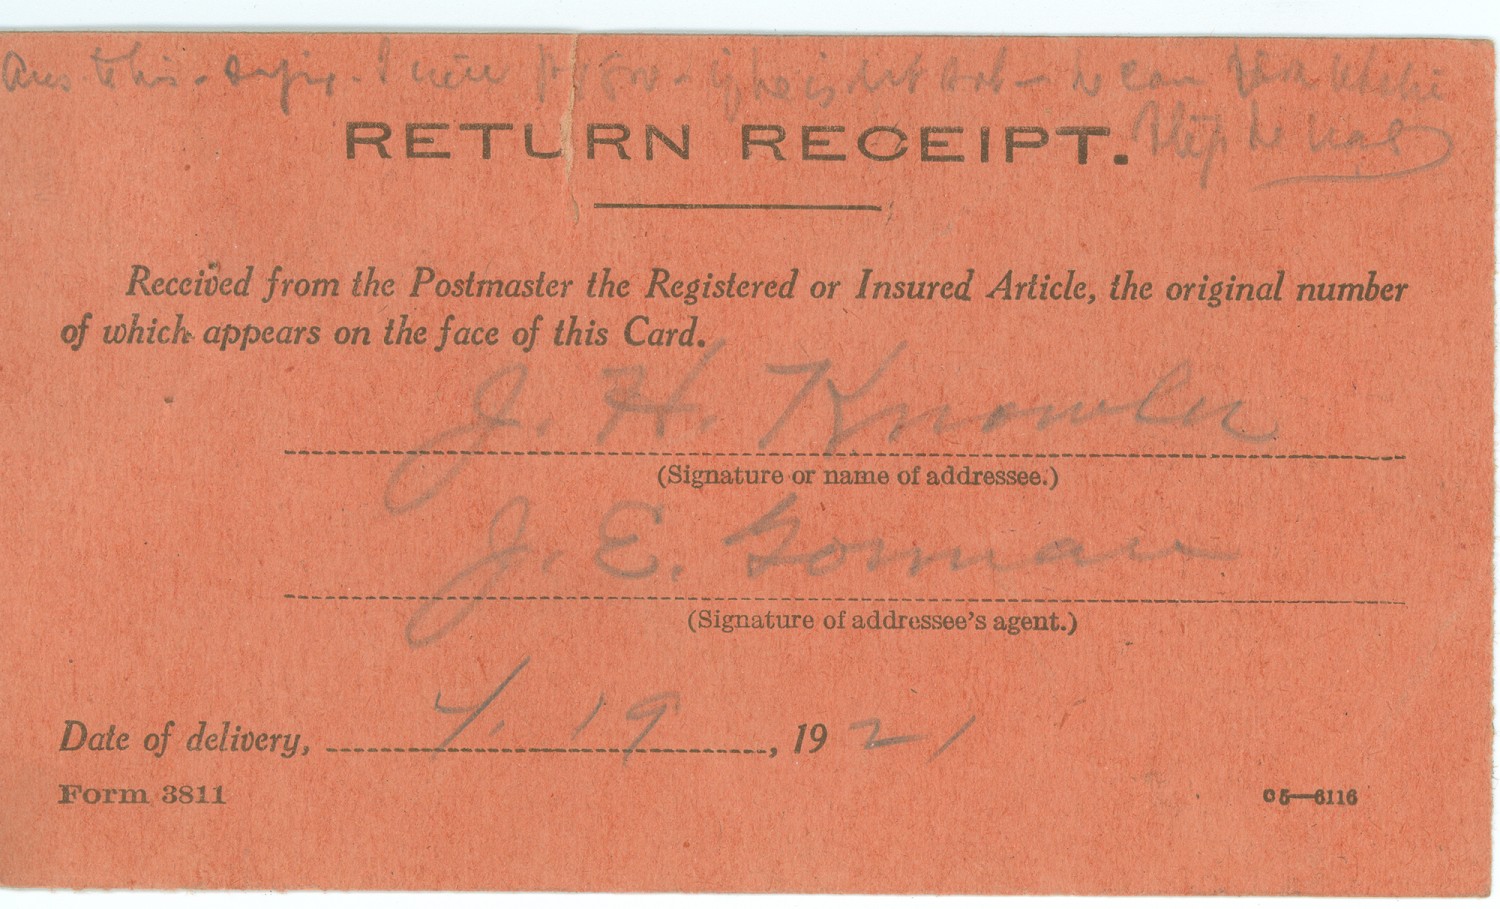 Ans this. I if he is not he can
RETURN RECEIPT.
Received from the Postmaster the Registered or Insured Article, the original number
of which appears on the face of this Card.
J. H. Knowler
(Signature or name of addressee.)
J. E. Gorman
(Signature of addressee's agent.)
Date of delivery, 4/. 19, 1921
Form 3811
05—6116